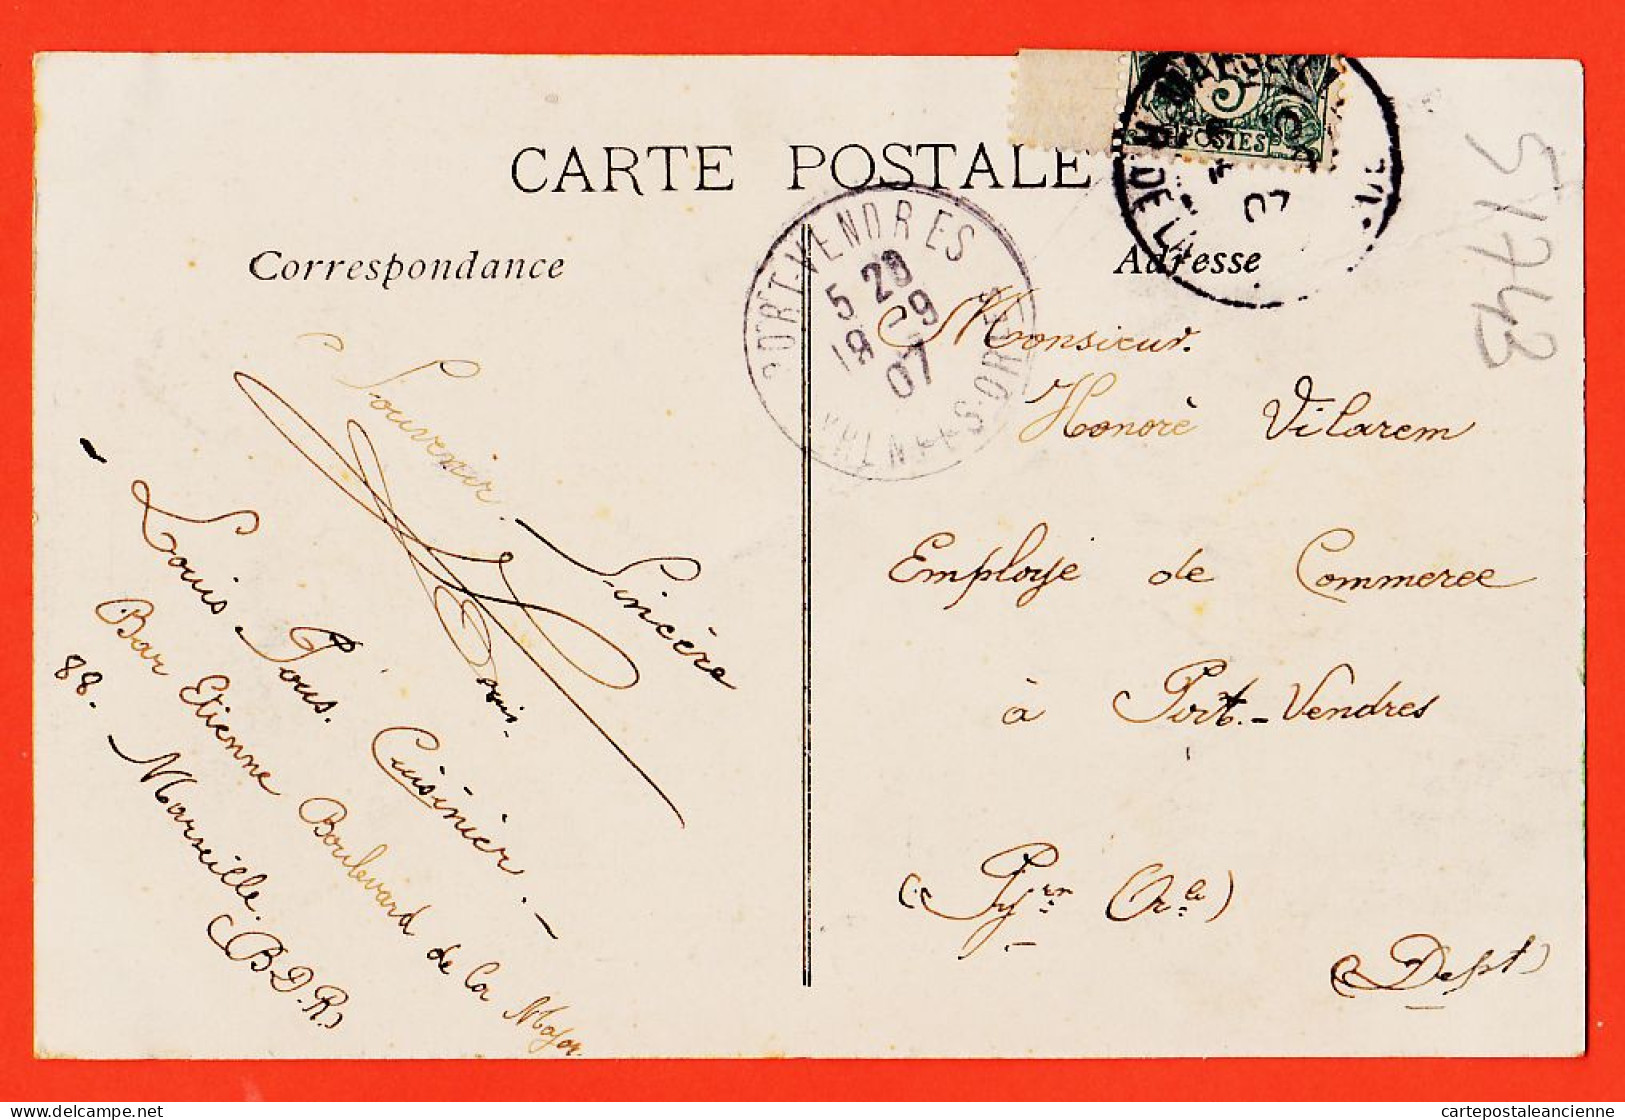 CARTE POSTALE
Correspondance
Adresse
POSTES
5
DE LA
07
PORT-VENDRES
5 20
19 -9
07
PYRÉNÉES-ORLES
51743
Souvenir Sincère
Louis
Louis Pous. Cuisinier.
Bar Etienne Boulevard de la Major
88. Marseille.
(B.D.R.)
Monsieur.
Honorè Vilarem
Employé de Commerce
à Port-Vendres
(Pyrn Orle)
(Dept)
cartepostaleancienne